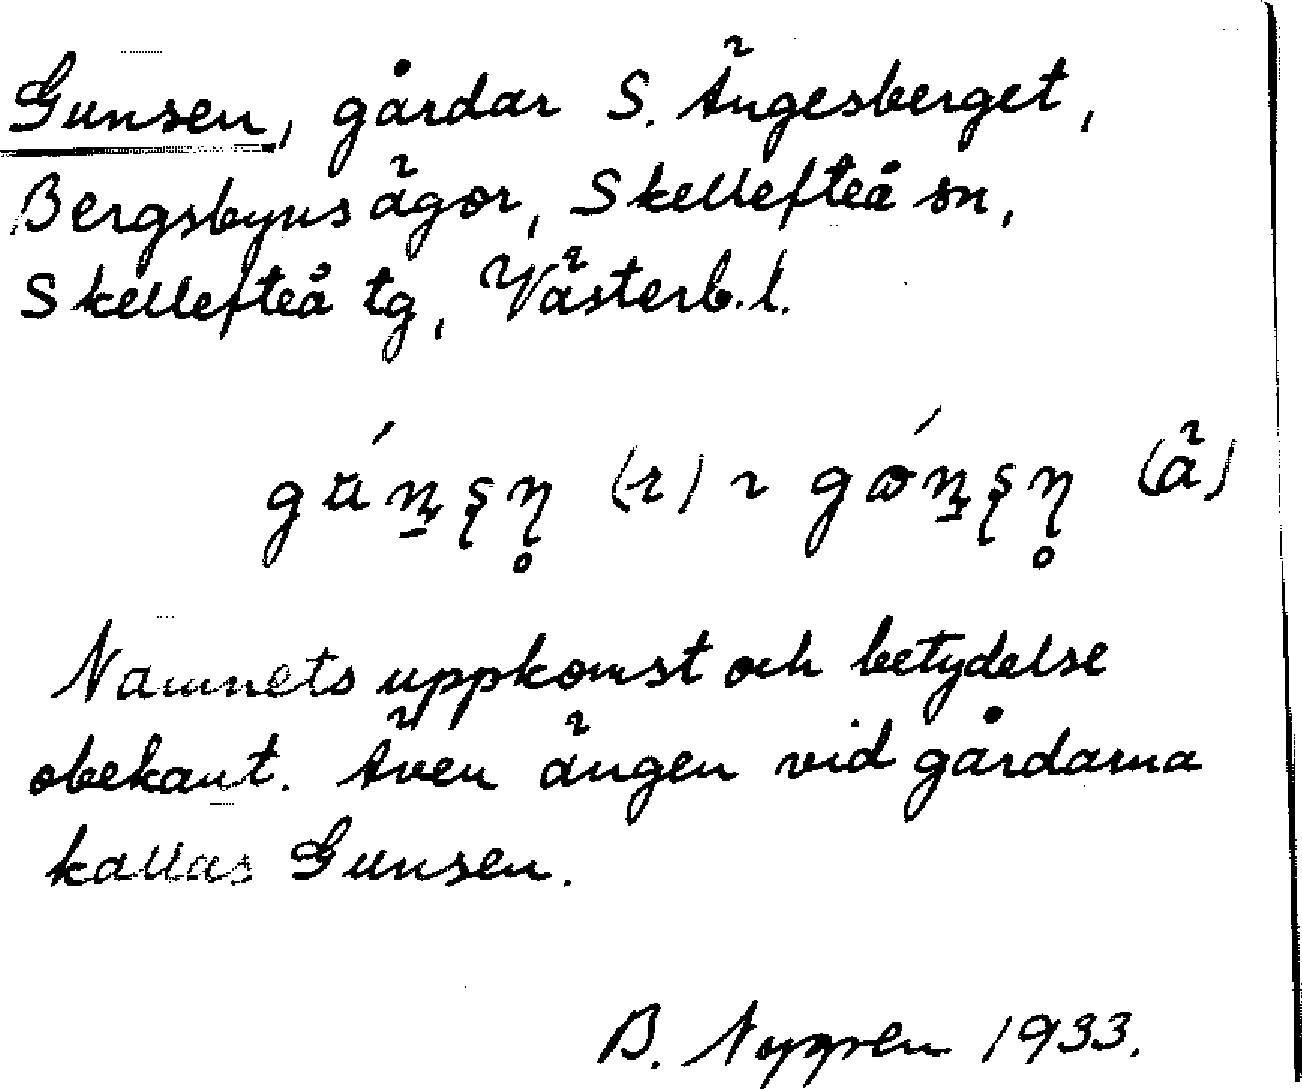 Gunsen, gårdar S. Ängesberget,
Bergsbyns ägor, Skellefteå sn,
Skellefteå tg, Västerb. l.
Namnets uppkomst och betydelse
obekant. Även ängen vid gårdarna
kallas Gunsen.
B. Nygren 1933.